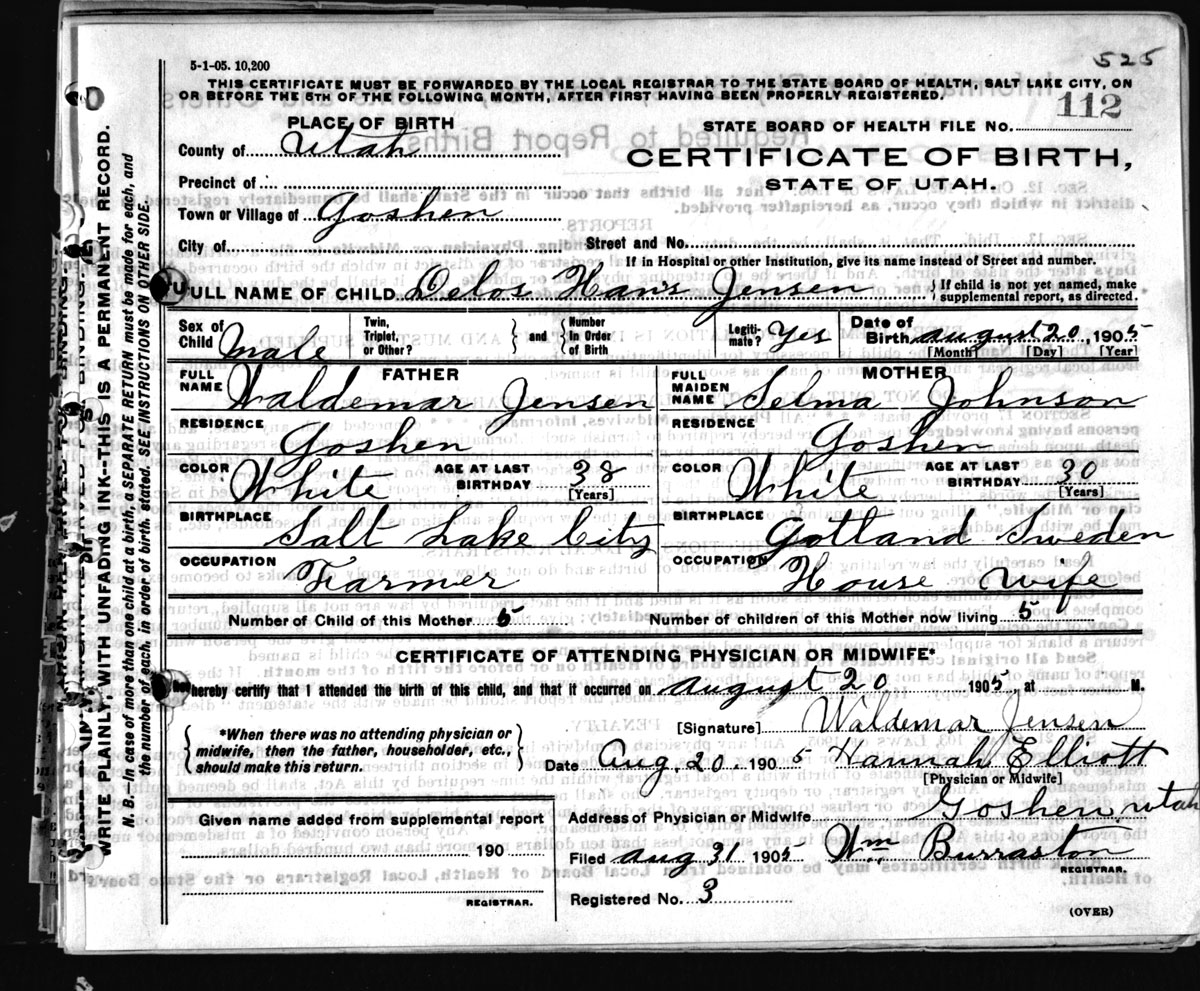 525
5-1-05. 10,200
THIS CERTIFICATE MUST BE FORWARDED BY THE LOCAL REGISTRAR TO THE STATE BOARD OF HEALTH, SALT LAKE CITY, ON
OR BEFORE THE 5TH OF THE FOLLOWING MONTH, AFTER FIRST HAVING BEEN PROPERLY REGISTERED.
112
PLACE OF BIRTH
STATE BOARD OF HEALTH FILE No.
County of Utah
CERTIFICATE OF BIRTH,
STATE OF UTAH.
Precinct of
Town or Village of Goshen
City of
Street and No.
If in Hospital or other Institution, give its name instead of Street and number.
FULL NAME OF CHILD Delos Hans Jensen
If child is not yet named, make
supplemental report, as directed.
Sex of Child Male
Twin, Triplet, or Other?
and
Number In Order of Birth
Legiti-mate? Yes
Date of Birth August 20, 1905
[Month] [Day] [Year]
FATHER
MOTHER
FULL NAME Waldemar Jensen
FULL MAIDEN NAME Selma Johnson
RESIDENCE Goshen
RESIDENCE Goshen
COLOR White AGE AT LAST BIRTHDAY 38 [Years]
COLOR White AGE AT LAST BIRTHDAY 30 [Years]
BIRTHPLACE Salt Lake City
BIRTHPLACE Gotland Sweden
OCCUPATION Farmer
OCCUPATION House wife
Number of Child of this Mother 5
Number of children of this Mother now living 5
CERTIFICATE OF ATTENDING PHYSICIAN OR MIDWIFE*
hereby certify that I attended the birth of this child, and that it occurred on August 20 1905, at M.
*When there was no attending physician or
midwife, then the father, householder, etc.,
should make this return.
[Signature] Waldemar Jensen
Date Aug. 20. 1905 Hannah Elliott
[Physician or Midwife]
Given name added from supplemental report
190
REGISTRAR.
Address of Physician or Midwife Goshen, Utah
Filed Aug 31 1905 Wm Burraston
REGISTRAR.
Registered No. 3
(OVER)
WRITE PLAINLY, WITH UNFADING INK--THIS IS A PERMANENT RECORD.
N. B.—In case of more than one child at a birth, a SEPARATE RETURN must be made for each, and
the number of each, in order of birth, stated. SEE INSTRUCTIONS ON OTHER SIDE.